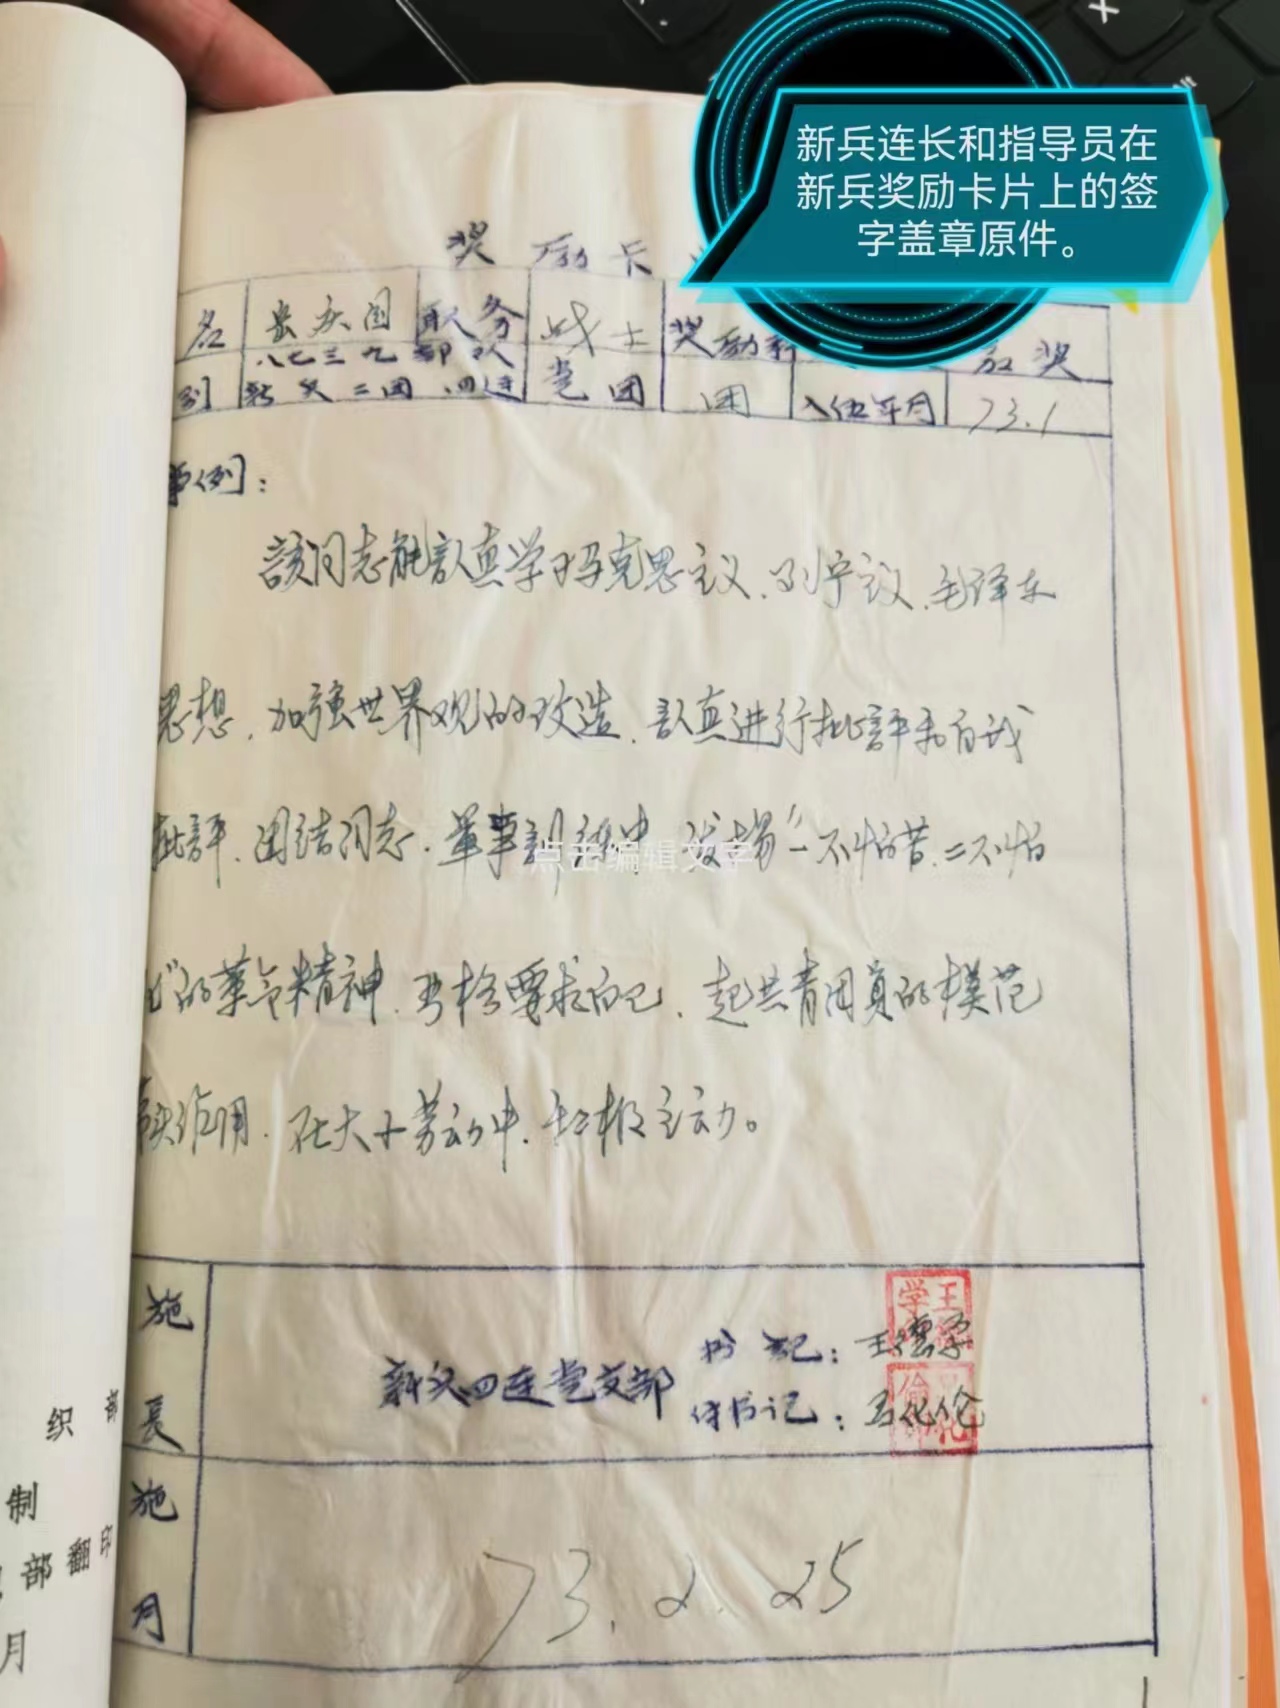 新兵连长和指导员在
新兵奖励卡片上的签
字盖章原件。
奖励卡
名 岳庆国 职务 战士 奖励
八七三九部队
别 新兵二团四连 党团 团 入伍年月 73.1
奖
事例:
該同志能認真学习马克思主义、列宁主义、毛泽东
思想,加強世界观的改造,認真进行批評和自我
批評,团结同志,軍事訓練中,发揚“一不怕苦,二不怕
死”的革命精神,严格要求自己,起共青团員的模范
作用,在大小劳动中,积极主动。
点击编辑文字
施 新兵四连党支部 书記:王德学
長 付书记:
王 学
伦 化
施 73.2.25
月
织部
制
部翻印
月